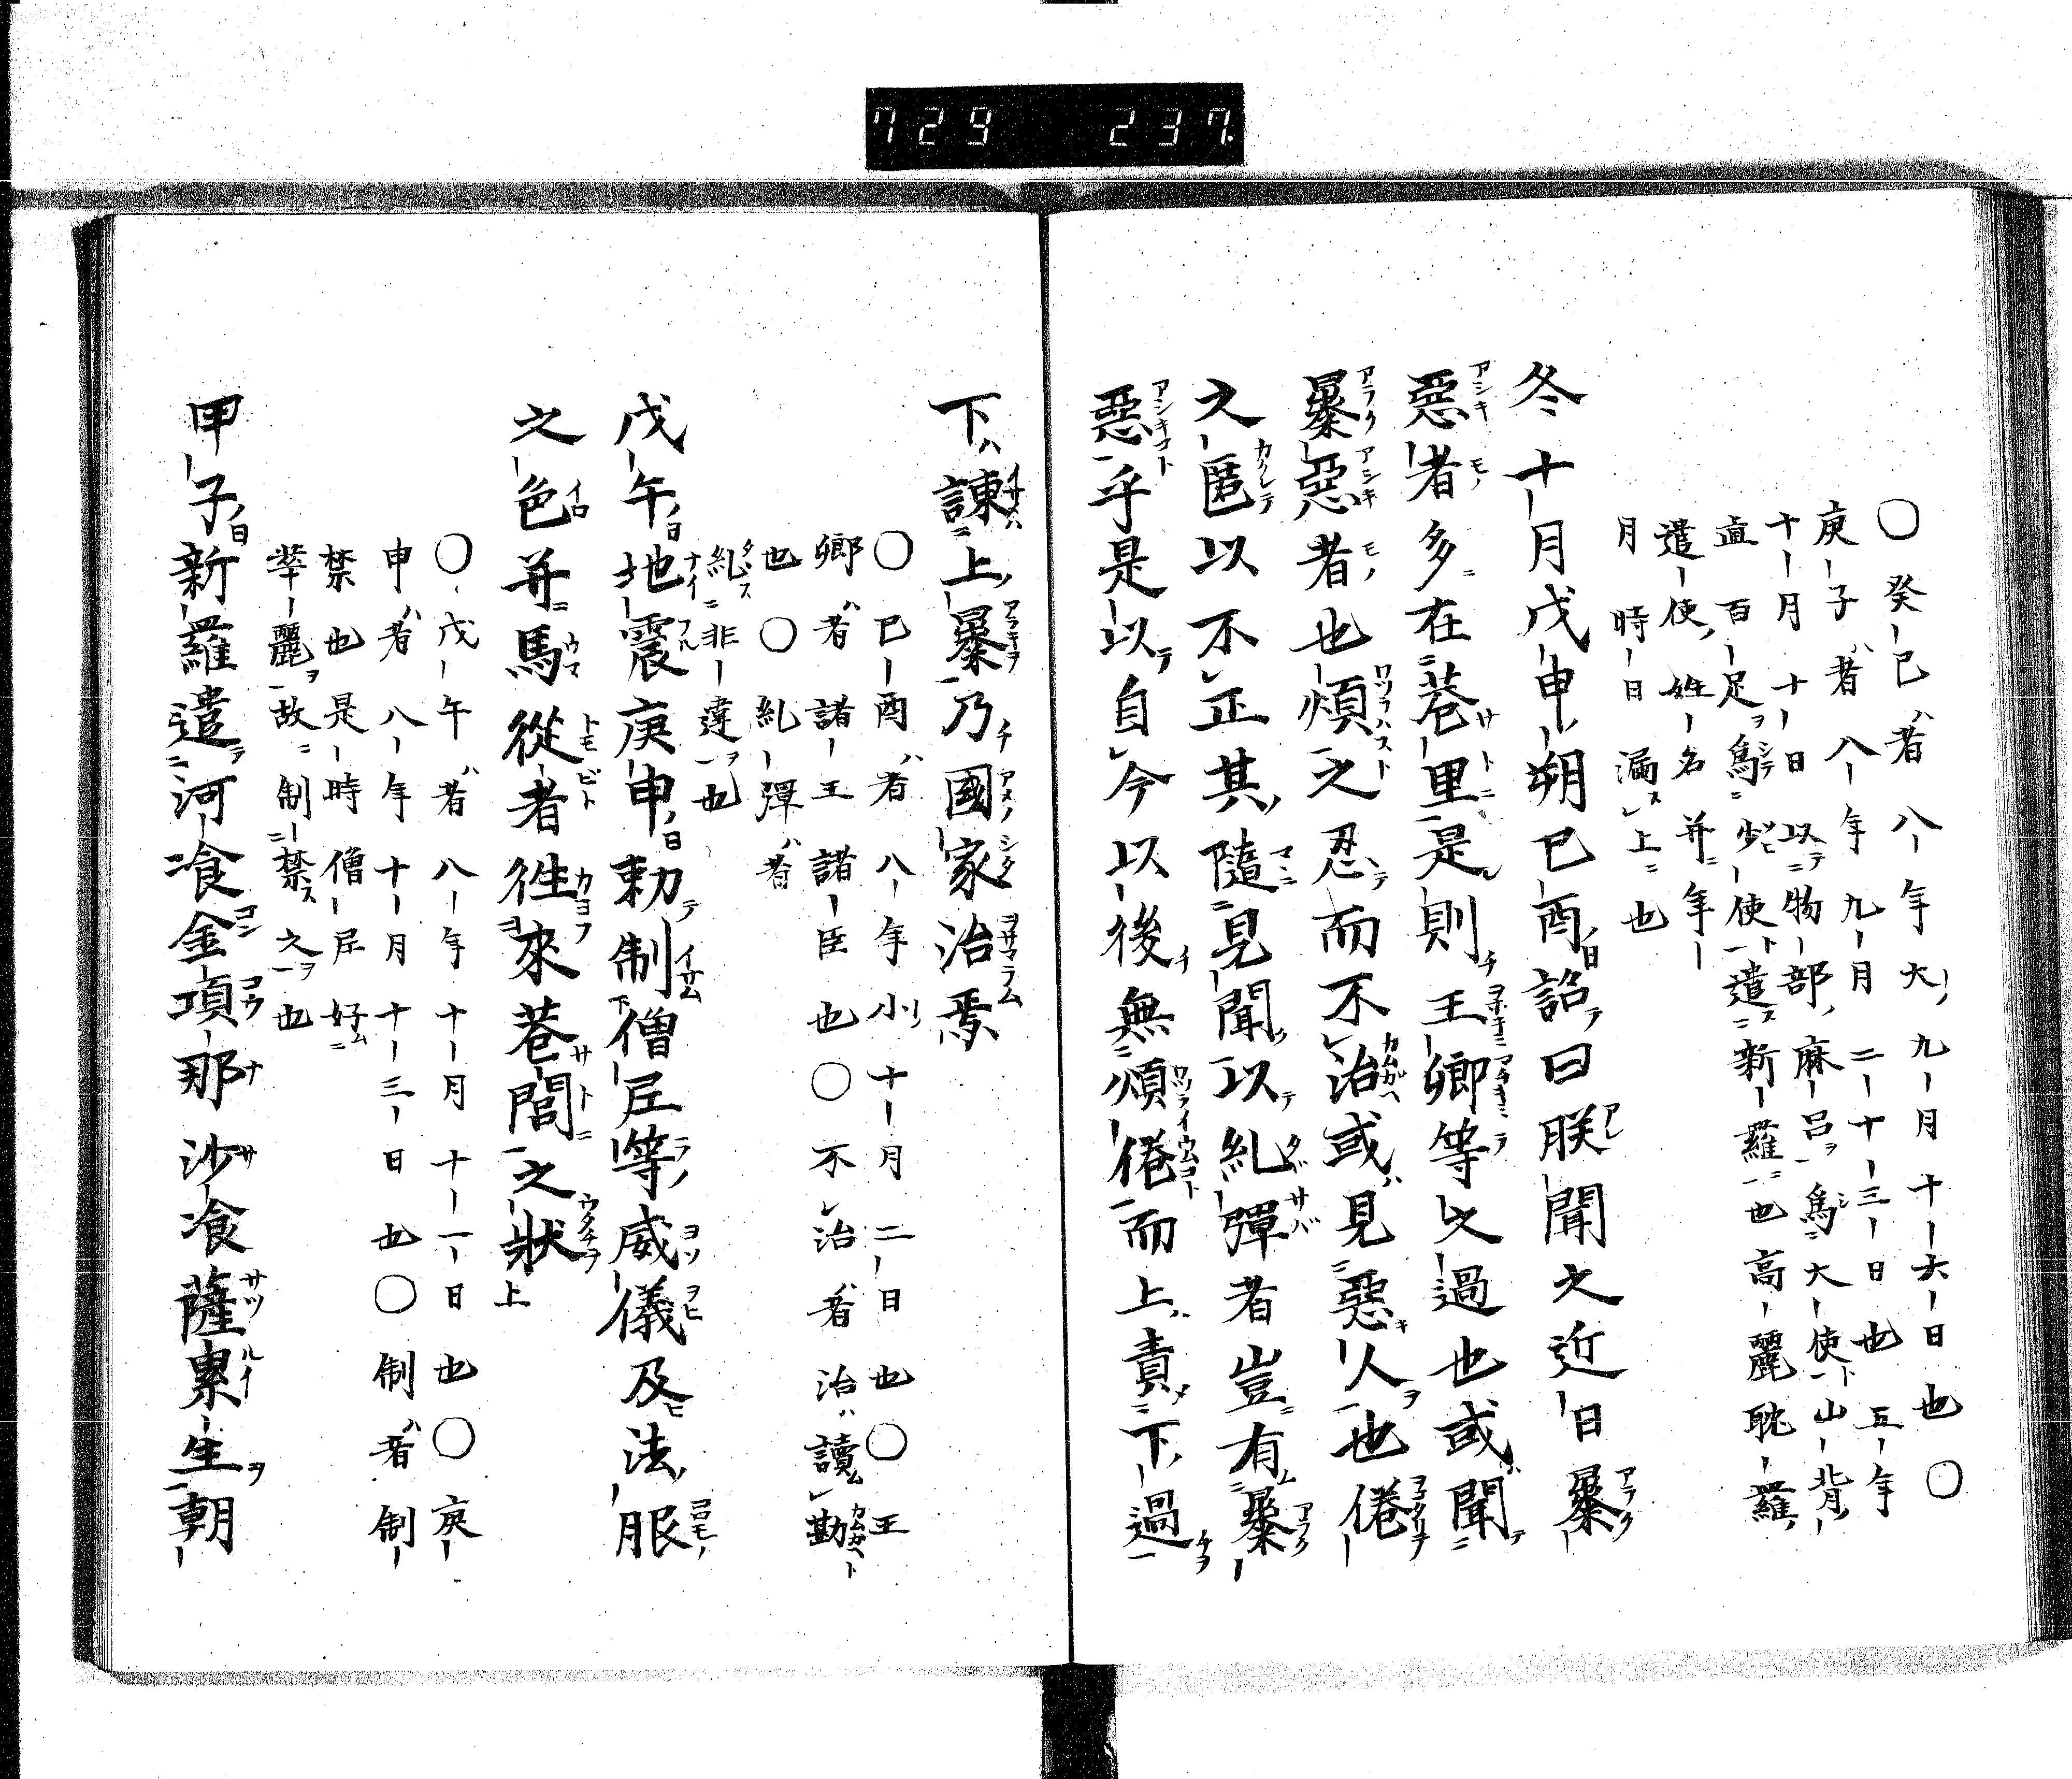 729 237.
○癸巳者八年大九月十六日也○
庚子者八年九月二十三日也五年
十月十日以物部麻呂爲大使山背
直百足爲少使遣新羅也高麗耽羅
遣使姓名并年
月時日漏上也
冬十月戊申朔己酉詔曰朕聞之近日暴
惡者多在巷里是則王卿等之過也或聞
暴惡者也煩之忍而不治或見惡人也倦
之匿以不正其隨見聞以糺彈者豈有暴
惡乎是以自今以後無煩倦而上責下過
下諫上暴乃國家治焉
○己酉者八年小十月二日也○王
卿者諸王諸臣也○不治者治讀勘
也○糺彈者
糺非違也
戊午地震庚申勅制僧尼等威儀及法服
之色并馬從者徃來巷閭之狀
○戊午者八年十月十一日也○庚
申者八年十月十三日也○制者制
禁也是時僧尼好
華麗故制禁之也
甲子新羅遣河飡金項那沙飡薩累生朝